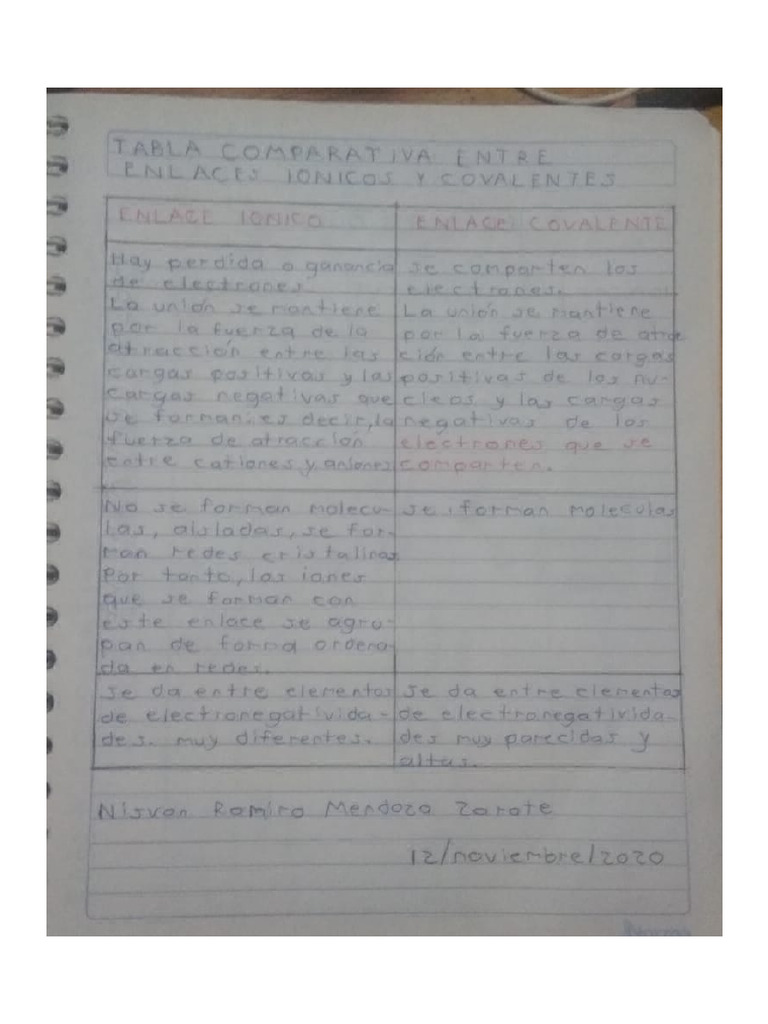 TABLA COMPARATIVA ENTRE
ENLACES IONICOS Y COVALENTES
ENLACE IONICO
ENLACE COVALENTE
Hay perdida o ganancia
de electrones.
se comparten los
electrones.
La unión se mantiene
por la fuerza de la
atracción entre las
cargas positivas y las
cargas negativas que
se forman, es decir, la
fuerza de atracción
entre cationes y aniones
La unión se mantiene
por la fuerza de atrac
ción entre las cargas
positivas de los nu-
cleos y las cargas
negativas de los
electrones que se
comparten.
No se forman molecu-
las, aisladas, se for-
man redes cristalinas.
Por tanto, los iones
que se forman con
este enlace se agru-
pan de forma ordena-
da en redes.
se forman moleculas
se da entre elementos
de electronegativida-
des muy diferentes.
se da entre elementos
de electronegativida-
des muy parecidas y
altas.
Nisvan Ramiro Mendoza Zarate
12/noviembre/2020